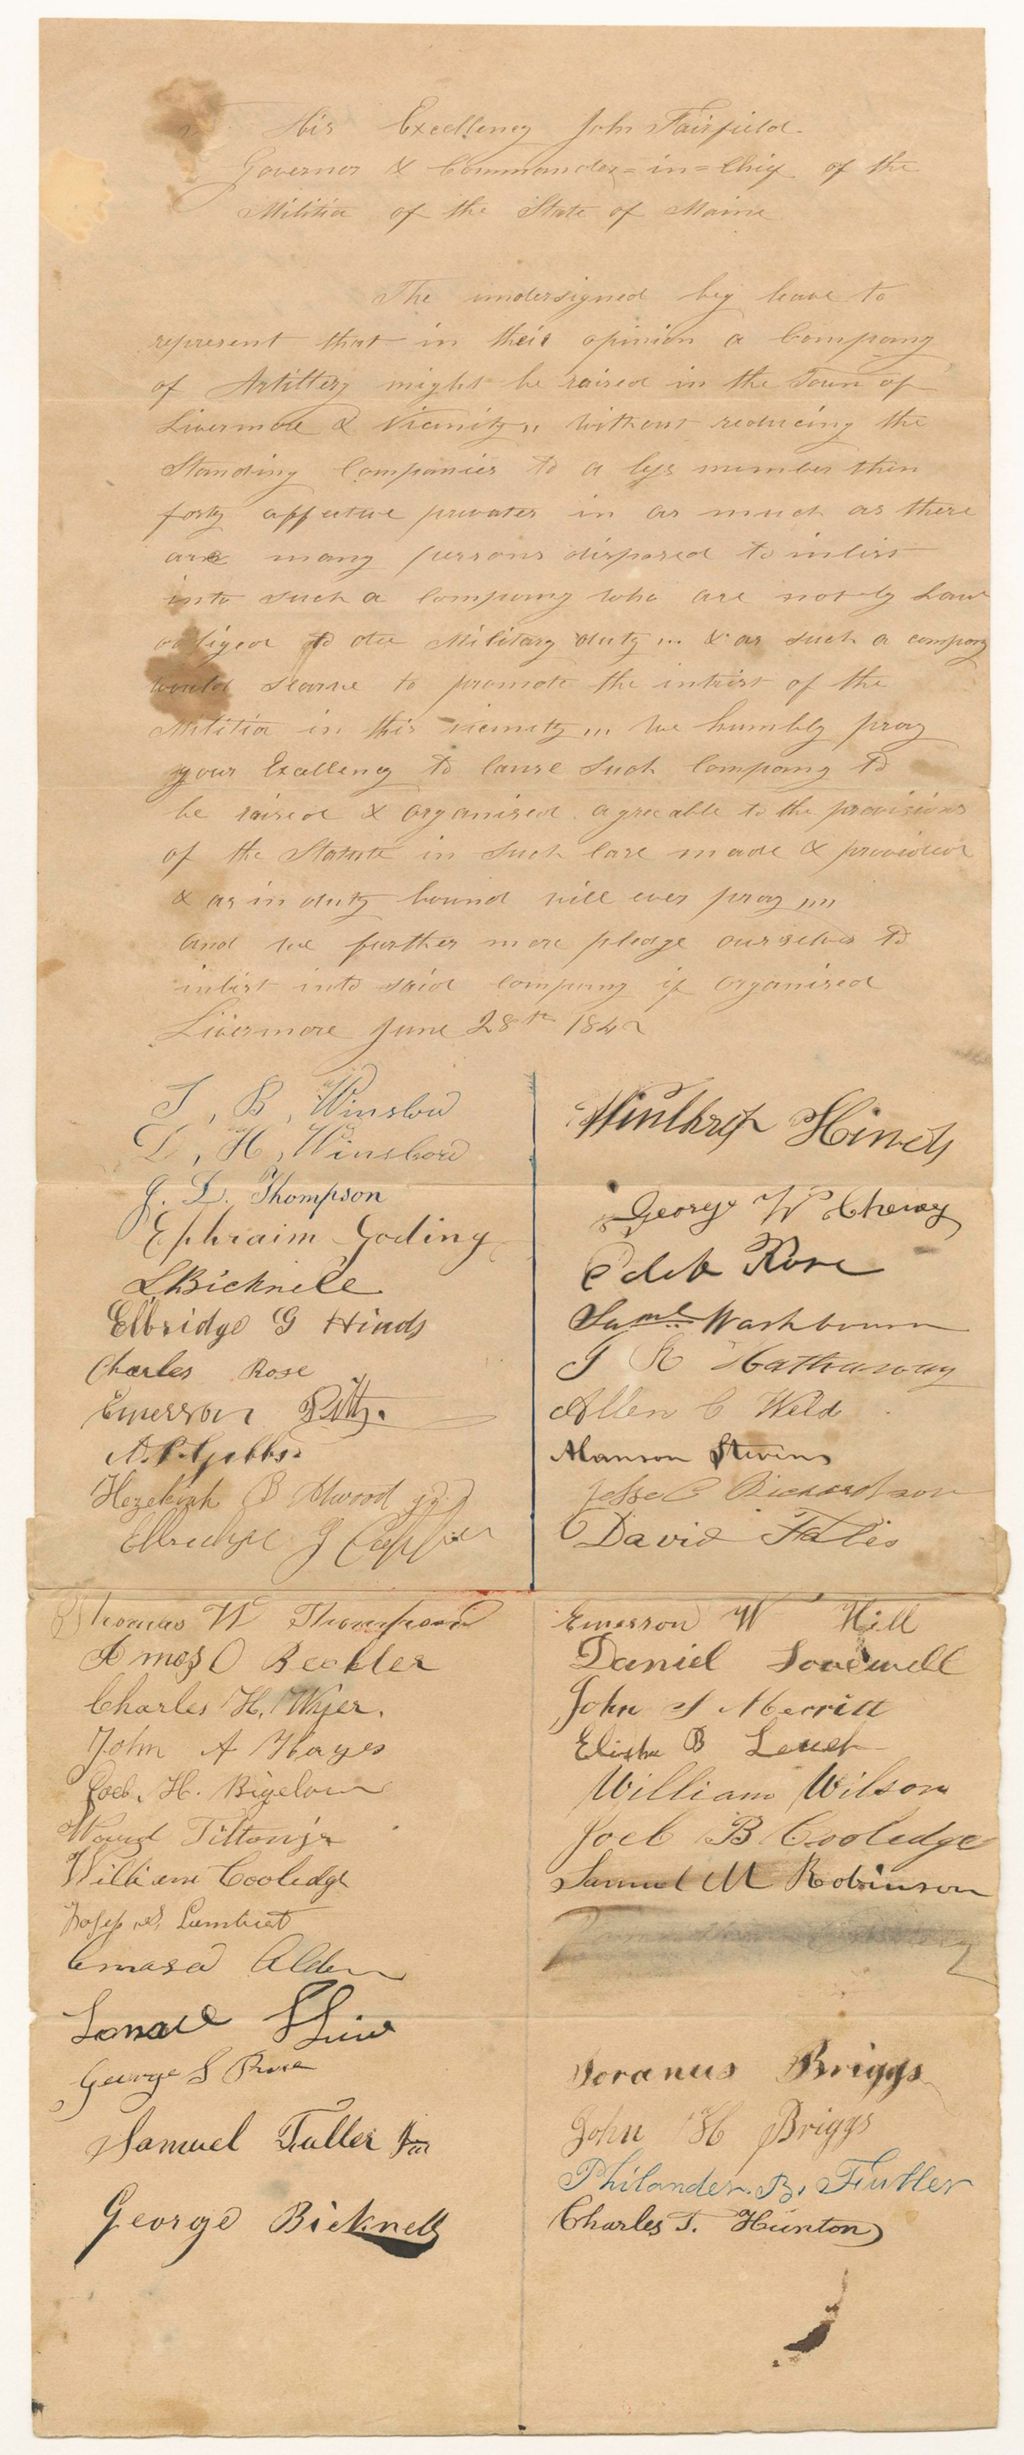 His Excellency John Fairfield
Governor & Commander=in=Chief of the
Militia of the State of Maine
The undersigned beg leave to
represent that in their opinion a Company
of Artillery might be raised in the Town of
Livermore & Vicinity,, without reducing the
Standing Companies to a less number then
forty affective privates in as much as there
are many persons disposed to inlist
into such a company who are not by Law
obliged to do Military duty ... & as such a company
would searve to promote the intrist of the
Militia in this vicinity ,,, we humbly pray
your Excellency to cause such Company to
be raised & organised agreeable to the provisions
of the Statute in such case made & provided
& as in duty bound will ever pray ,,,,
and we further more pledge ourselves to
inlist into said company if organised
Livermore June 28th 1842
T, B, Winslow
D, H, Winslow
J. L. Thompson
Ephraim Goding
L Bicknell
Elbridge G Hinds
Charles Rose
Emerson
A. P. Gibbs
Hezekiah B Atwood
Elbridge G
Thomas W Thompson
Amos O Beckler
Charles H. Wyer.
John A Hayes
H. Bigelow
Tilton jr
William Cooledge
Lambert
Amasa Alden
George S Rose
Samuel Fuller
George Bicknell
Winthrop Hinds
George W Cheney
Caleb Rose
Saml Washburn
G R Hathaway
Allen C Weld
Alanson Stevins
Jesse C Richardson
David Fales
Emerson W Hill
Daniel Lovewell
John S Merritt
Elisha B Leach
William Wilson
Joel B Cooledge
Samuel M Robinson
Soranus Briggs
John H Briggs
Philander. B, Fuller
Charles T. Hunton